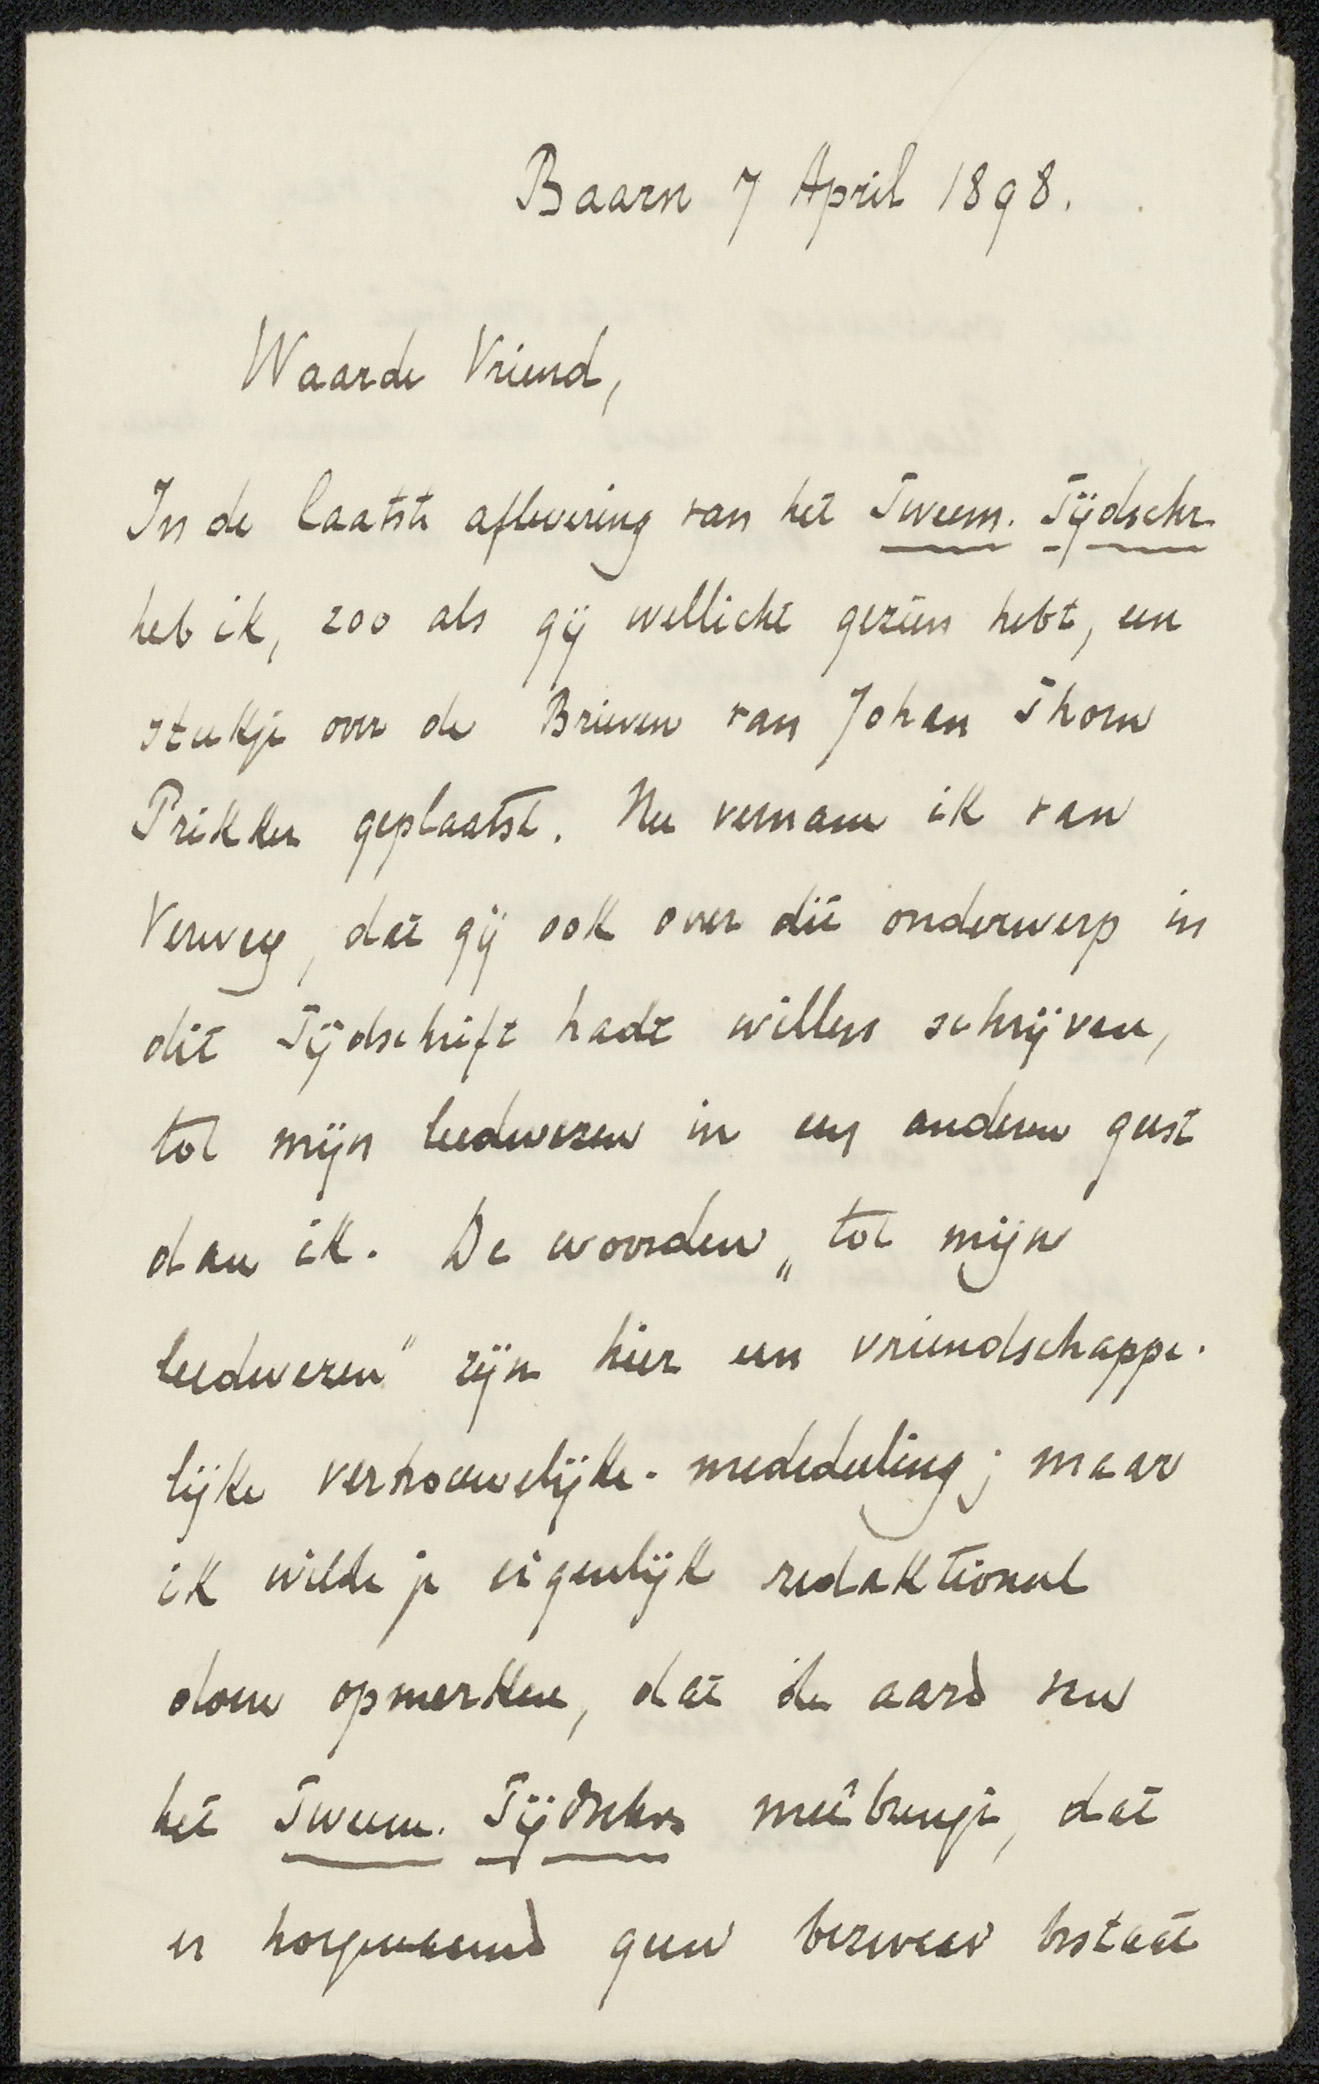 Baarn 7 April 1898.
Waarde Vriend,
In de laatste aflevering van het Tweem. Tijdschr.
heb ik, zoo als gij wellicht gezien hebt, een
stukje over de Brieven van Johan Thorn
Prikker geplaatst. Nu vernam ik van
Verwey, dat gij ook over dit onderwerp in
dit Tijdschrift hadt willen schrijven,
tot mijn leedwezen in een anderen geest
dan ik. De woorden „tot mijn
leedwezen" zijn hier een vriendschappe-
lijke vertrouwelijke mededeeling; maar
ik wilde je eigenlijk redaktioneel
doen opmerken, dat de aard van
het Tweem. Tijdschr. meêbrengt, dat
er hoegenaamd geen bezwaar bestaat